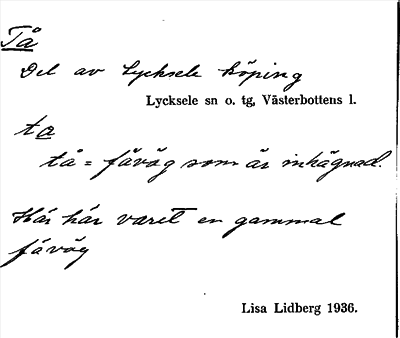 Tå
Del av Lycksele köping
Lycksele sn o. tg, Västerbottens l.
ta
tå = fäväg som är inhägnad.
Här har varit en gammal
fäväg
Lisa Lidberg 1936.